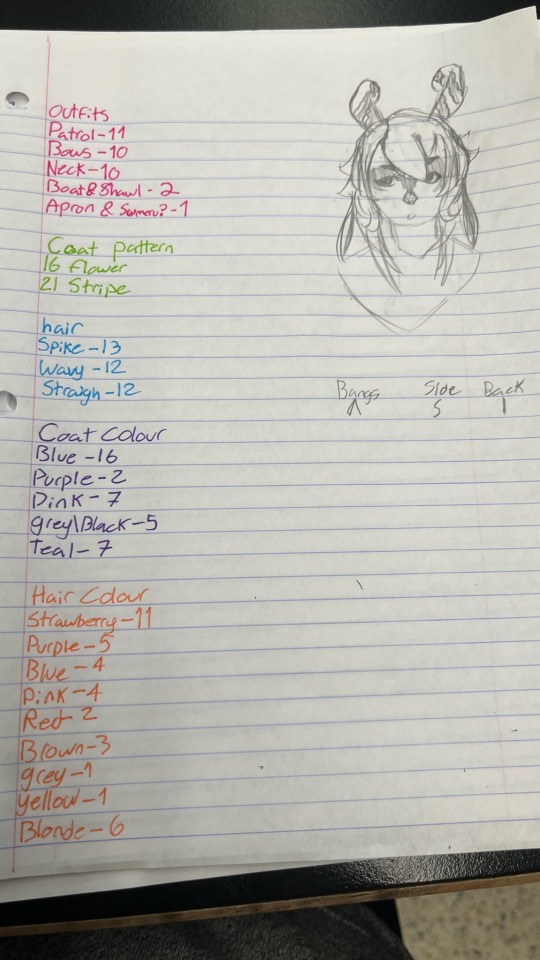 Outfits
Patrol-11
Bows-10
Neck-10
Boat&Shawl-2
Apron & ?-1
Coat pattern
16 flower
21 Stripe
hair
Spike-13
Wavy-12
Straigh-12
Bangs Side Back
Coat Colour
Blue-16
Purple-2
Pink-7
grey\Black-5
Teal-7
Hair Colour
Strawberry-11
Purple-5
Blue-4
Pink-4
Red-2
Brown-3
grey-1
yellow-1
Blonde-6